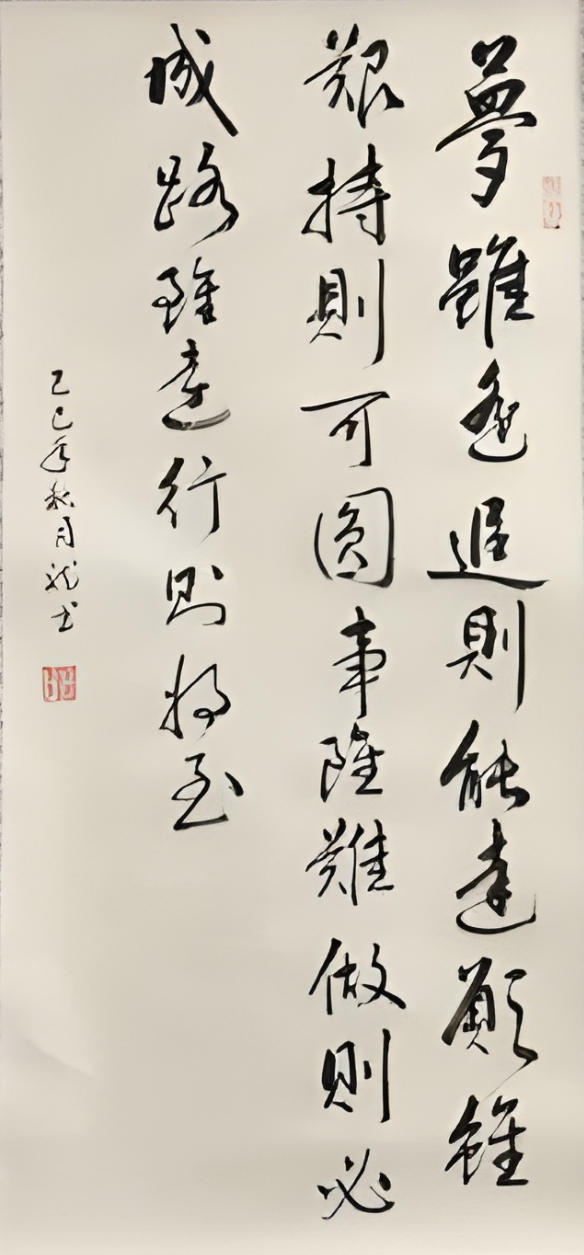 夢雖遙追則能達願雖
艱持則可圓事雖難做則必
成路雖遠行則將至
乙巳年秋月